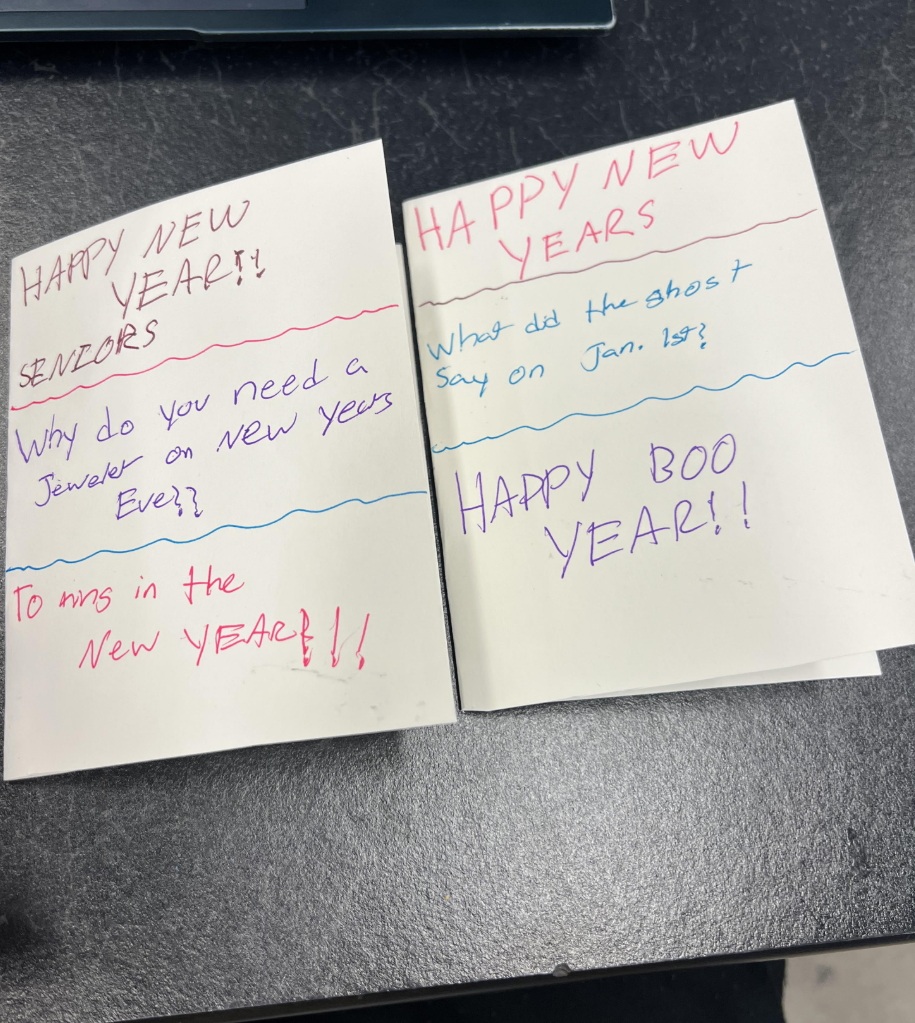 HAPPY NEW
YEAR!!
SENIORS
Why do you need a
Jeweler on New Years
Eve??
To ring in the
New YEAR!!!
HAPPY NEW
YEARS
What did the ghost
Say on Jan. 1st?
HAPPY BOO
YEAR!!